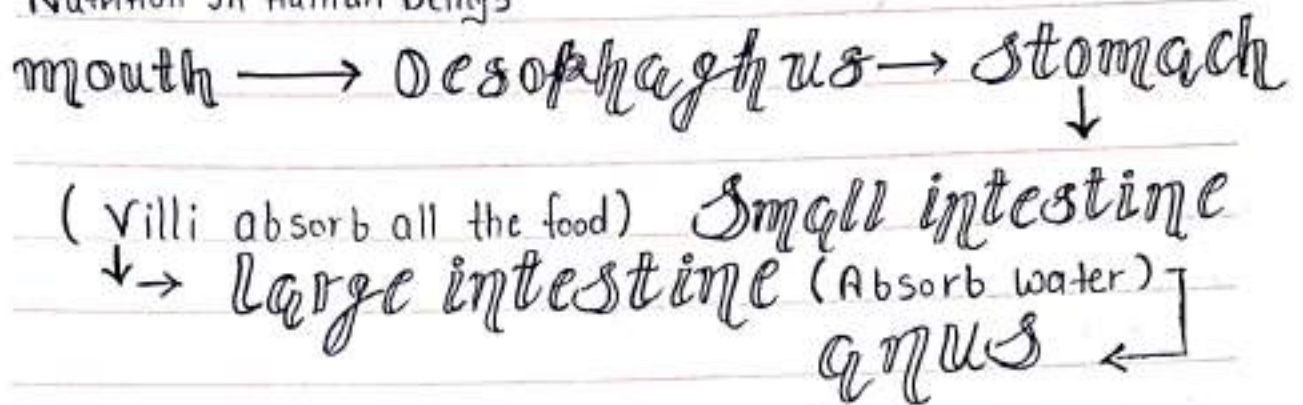 Nutrition in Human Beings
mouth → Oesophaghus → stomach
↓
(Villi absorb all the food) Small intestine
↓→ Large intestine (Absorb water)
anus ←